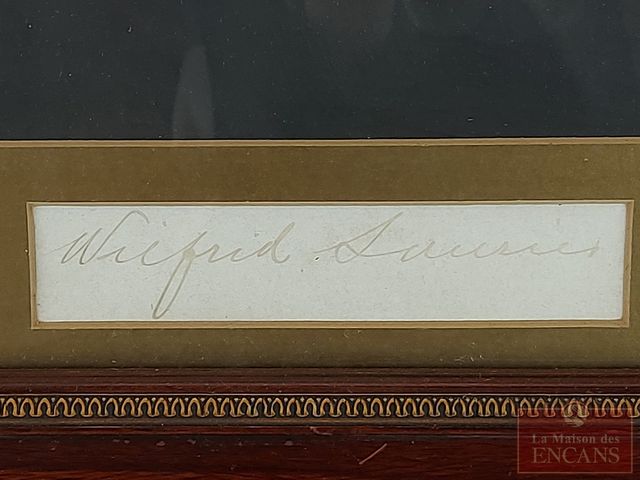 Wilfrid Laurier
La Maison des
ENCANS